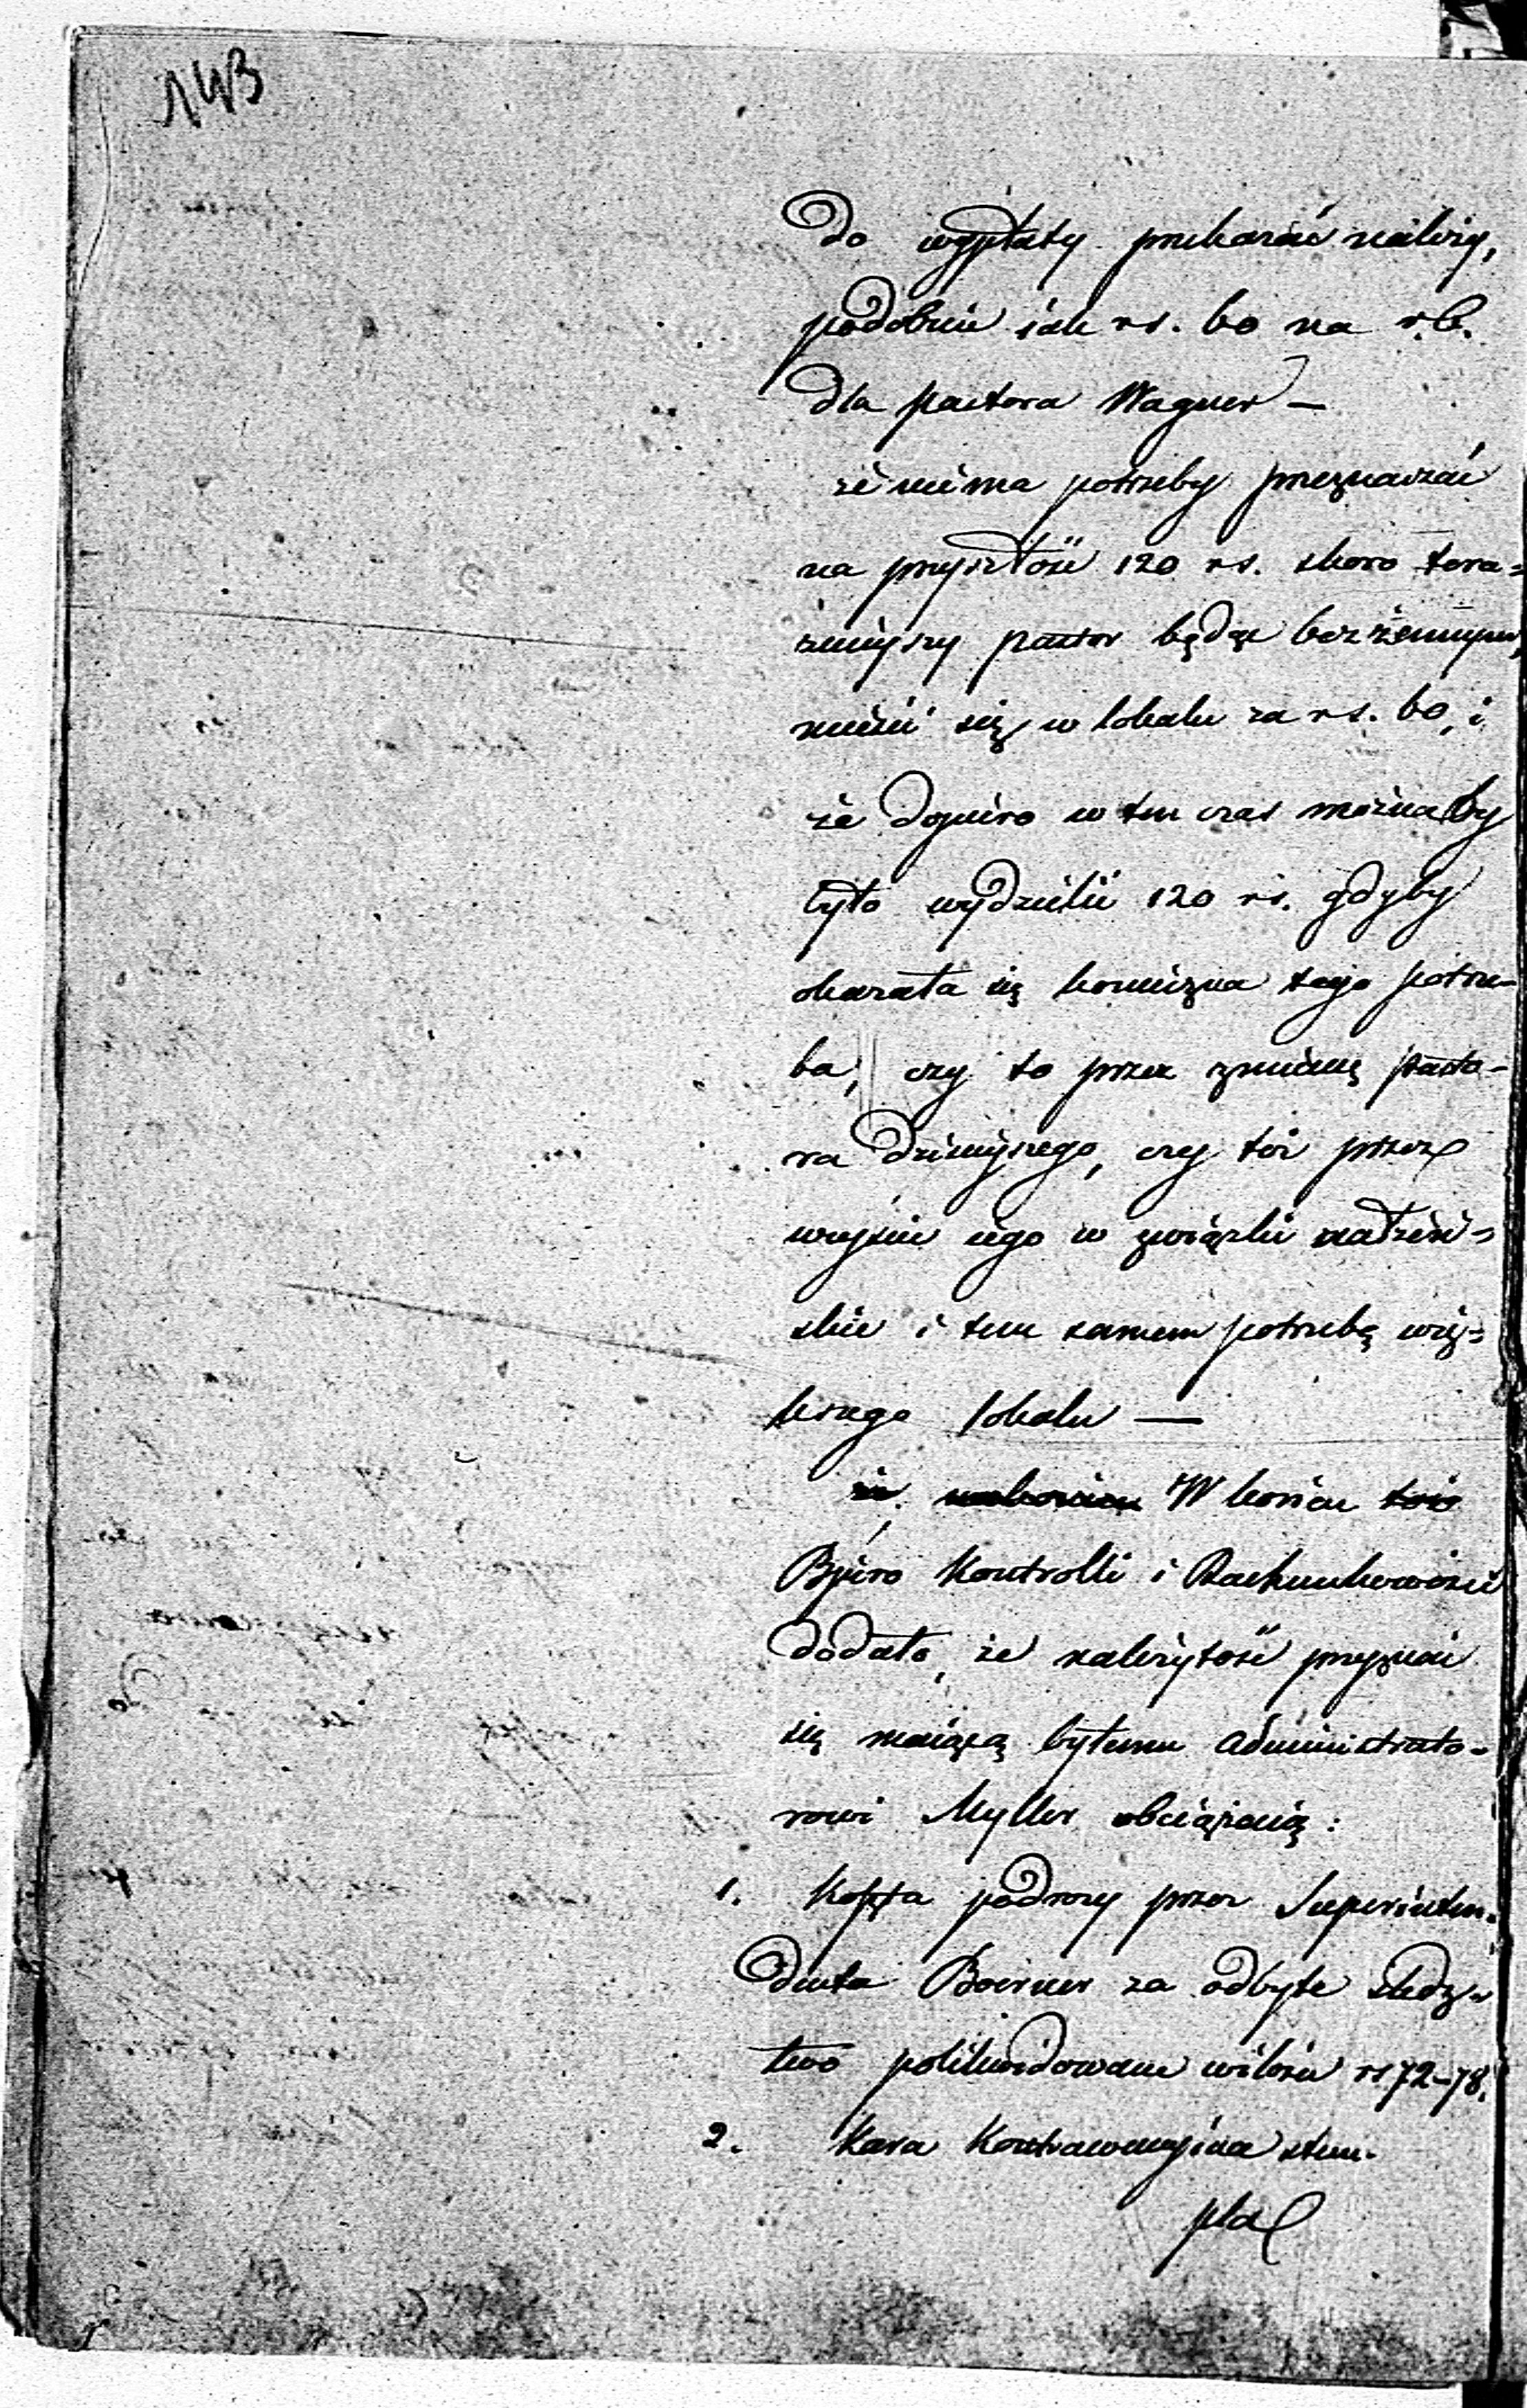 143
do wypłaty przekazać należy,
podobnie jak rs. 60 na r.b.
dla pastora Wagner —
że niema potrzeby przeznaczać
na przyszłość 120 rs. skoro tera=
źniejszy pastor będąc bezżennym,
mieści się w lokalu za rs. 60, i
że dopiero w ten czas możnaby
tyło wydzielić 120 rs. gdyby
okazała się konieczna tego potrze-
ba, czy to przez zmianę pasto-
ra dzisiejszego, czy też przez
wejście iego w związki małżeń=
skie i tem samem potrzebę wię=
kszego lokalu —
W końcu
Bióro Kontrolli i Rachunkowości
dodało, że należytość przyznać
się mającą byłemu Administrato-
rowi Myller obciążają:
1. Koszta podroży przez Superinten-
denta Boerner za odbyte śledz-
two polikwidowane w ilości rs 72-78.
2. Kara Kontrawencyjna stem-
pla